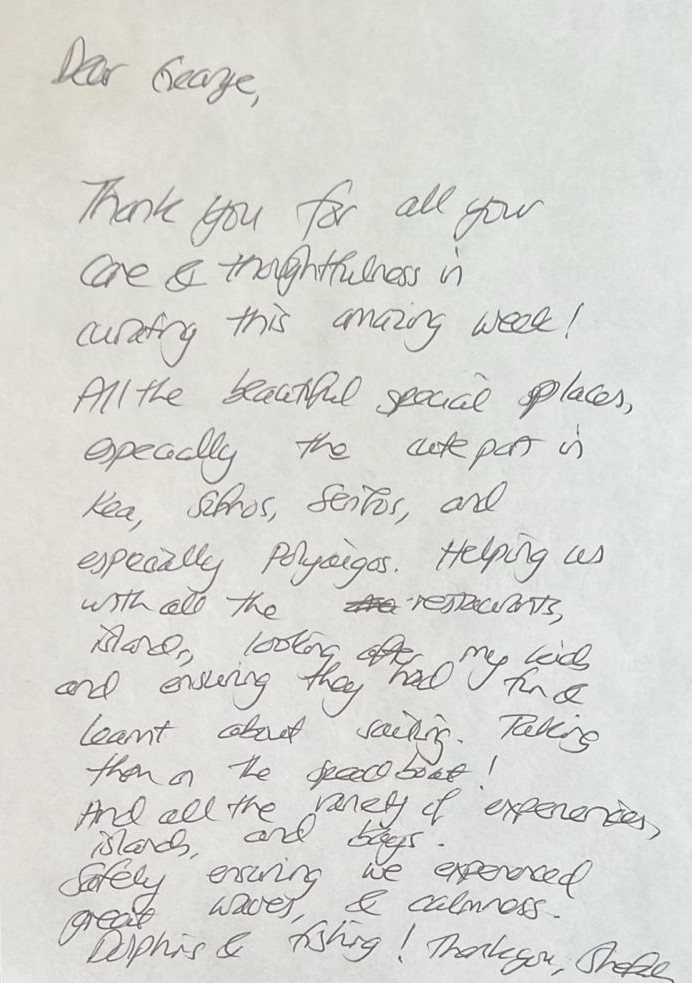 Dear George,
Thank you for all your
care & thoughtfulness in
curating this amazing week!
All the beautiful special places,
especially the cute port in
Kea, Sifnos, Serifos, and
especially Polyaigos. Helping us
with all the restaurants,
islands, looking after my kids
and ensuring they had fun &
learnt about sailing. Taking
them on the speed boat!
And all the variety of experiences,
islands, and bays.
Safely ensuring we experienced
great waves, & calmness.
Dolphins & fishing! Thank you,